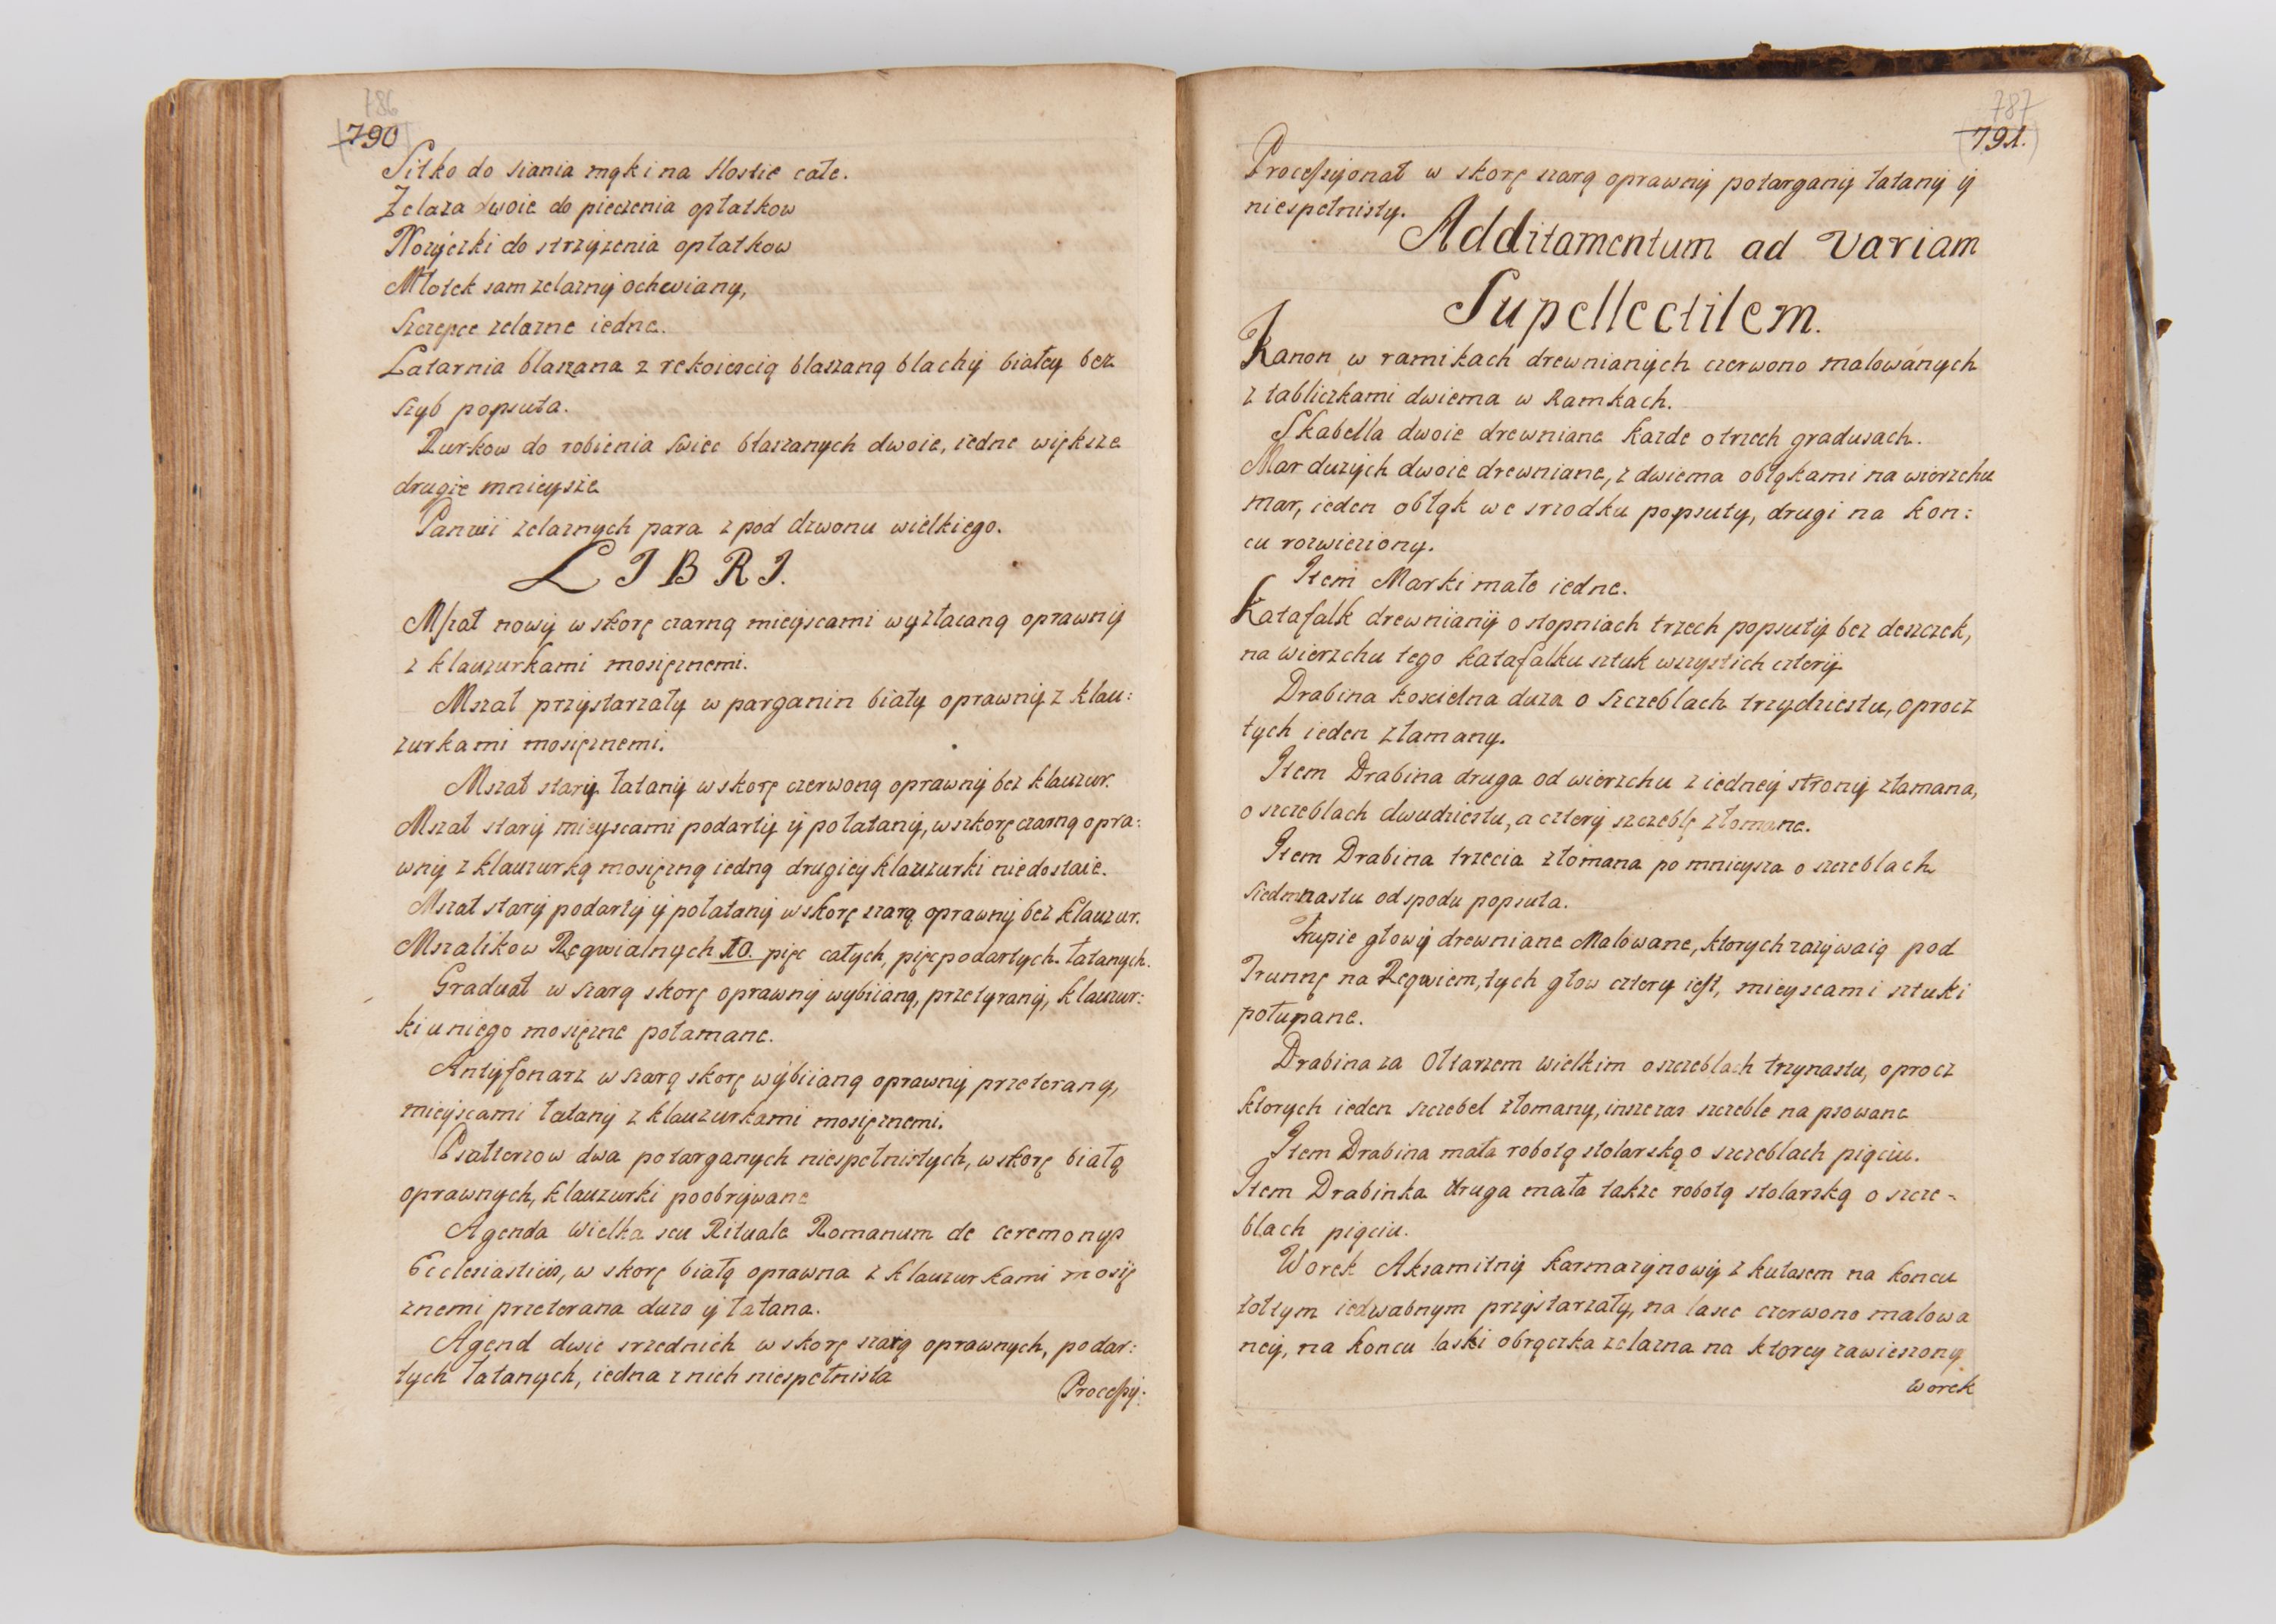 786
790
Sitko do siania mąki na Hostie całe.
Zelaza dwoie do pieczenia opłatkow
Nozyczki do strzyzenia opłatkow
Młotek sam zelazny ochwiany,
Szczepce zelazne iedne.
Latarnia blaszana z rekoiescią blaszaną blachy białey bez
szyb popsuta.
Rurkow do robienia swiec blaszanych dwoie, iedne większe
drugie mnieysze
Panwi zelaznych para z pod dzwonu wielkiego.
LIBRI.
Mszał nowy w skorę czarną mieyscami wyzłacaną oprawny
z klauzurkami mosięznemi.
Mszał przystarzały w parganin biały oprawny z klau:
zurkami mosięznemi.
Mszał stary łatany w skorę czerwoną oprawny bez klauzur.
Mszał stary mieyscami podarty y połatany, w skorę czarną opra:
wny z klauzurką mosięzną iedną drugiey klauzurki niedostaie.
Mszał stary podarty y połatany w skorę szarą oprawny bez klauzur.
Mszalikow Reqwialnych 10. pięc całych, pięc podartych łatanych.
Graduał w szarą skorę oprawny wybiianą, przetyrany, klauzur:
ki u niego mosięzne połamane.
Antyfonarz w szarą skorę wybiianą oprawny przeterany,
mieyscami łatany z klauzurkami mosięznemi.
Psałterzow dwa potarganych niespełnistych, w skorę białą
oprawnych, klauzurki poobrywane
Agenda Wielka seu Rituale Romanum de ceremonys
Ecclesiasticis, w skorę białą oprawna z klauzurkami mosię
znemi przeterana duzo y łatana.
Agend dwie srzednich w skorę szarą oprawnych, podar:
tych łatanych, iedna z nich niespełnista
Processy:
787
791.
Processyonał w skorę szarą oprawny potargany łatany y
niespełnisty.
Additamentum ad Variam
Supellectilem.
Kanon w ramikach drewnianych czerwono malowanych
z tabliczkami dwiema w Ramkach.
Skabella dwoie drewniane kazde o trzech gradusach.
Mar duzych dwoie drewniane, z dwiema obłąkami na wierzchu
mar, ieden obłąk we srzodku popsuty, drugi na kon:
cu rozwieziony.
Item Marki małe iedne.
Katafalk drewniany o stopniach trzech popsuty bez deszczek,
na wierzchu tego katafalku sztuk wszystich cztery
Drabina koscielna duza o szczeblach trzydziestu, oprocz
tych ieden złamany.
Item Drabina druga od wierzchu z iedney strony złamana,
o szczeblach dwudziestu, a cztery szczeblę złomane.
Item Drabina trzecia złomana po mnieysza o szczeblach
siedmnastu od spodu popsuta.
Trupie głowy drewniane Malowane, ktorych zazywaią pod
Trunnę na Reqwiem, tych głow cztery iest, mieyscami sztuki
połupane.
Drabina za Ołtarzem wielkim o szczeblach trzynastu, oprocz
ktorych ieden szczebel złomany, insze zas szczeble na psowane
Item Drabina mała robotą stolarską o szczeblach pięciu.
Item Drabinka druga mała takze robotą stolarską o szcze-
blach pięciu.
Worek Aksamitny karmazynowy z kutasem na koncu
zołtym iedwabnym przystarzały, na lasce czerwono malowa
ney, na koncu laski obrączka zelazna na ktorey zawieszony
worek